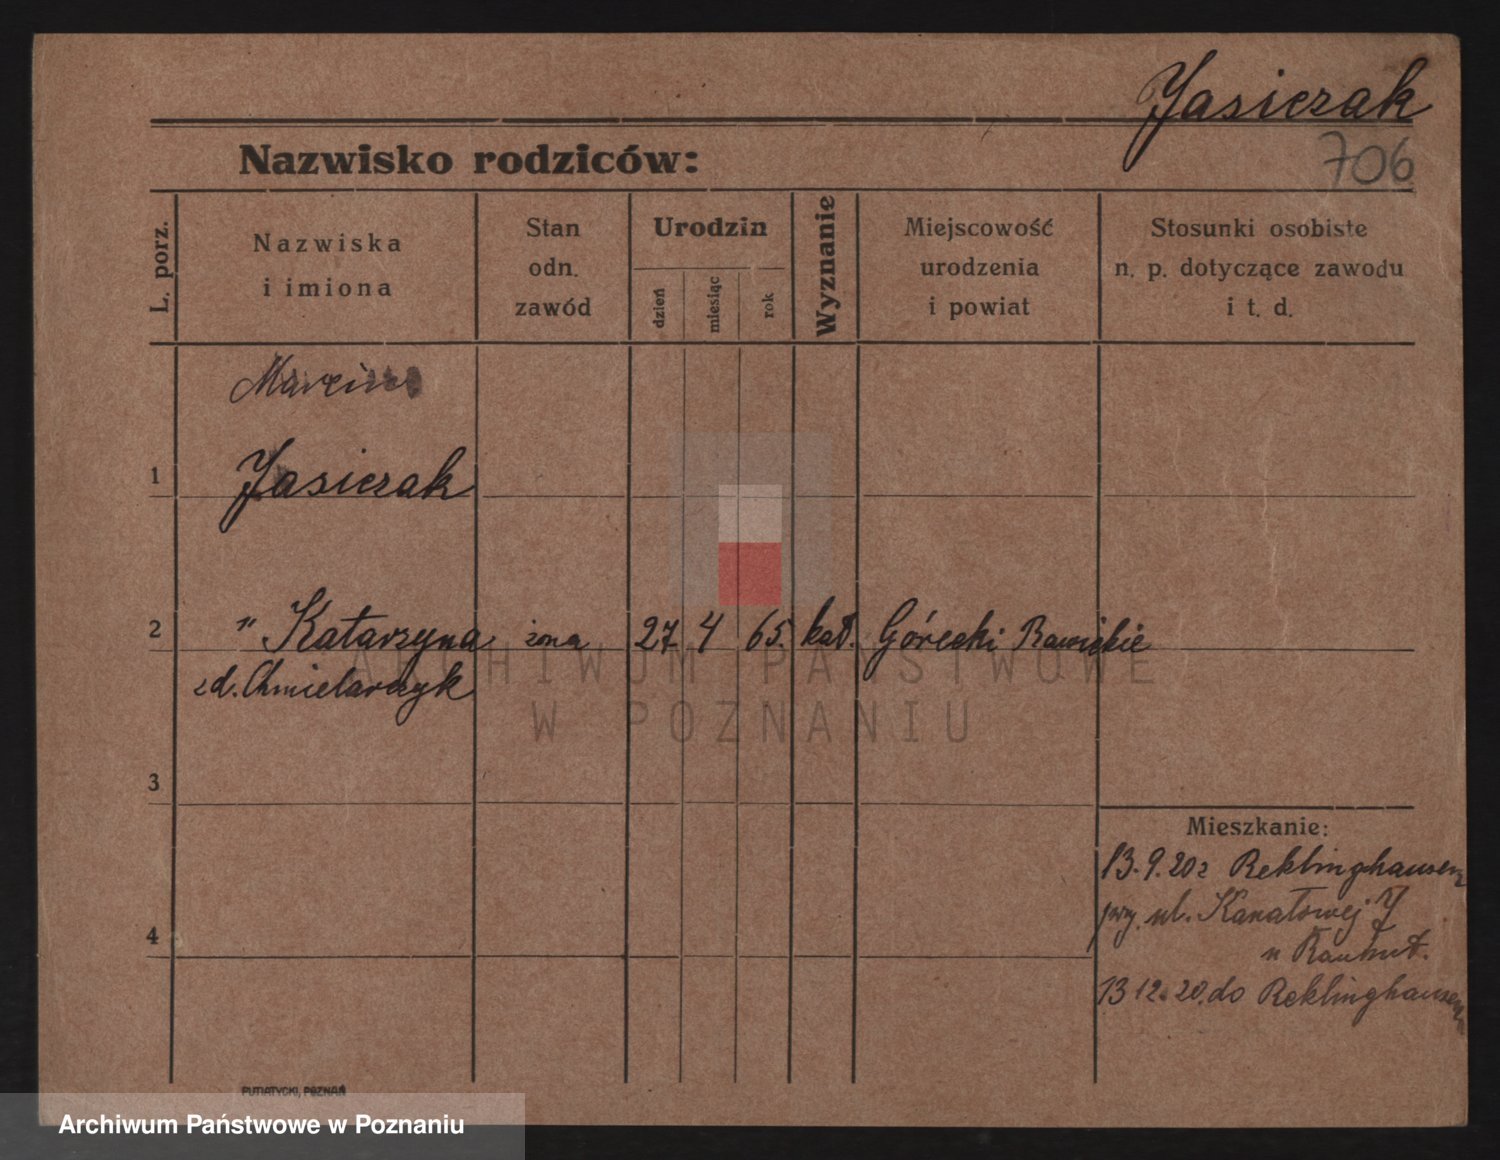 Jasiczak
Nazwisko rodziców:
706
L. porz.
Nazwiska
i imiona
Stan
odn.
zawód
Urodzin
dzień
miesiąc
rok
Wyznanie
Miejscowość
urodzenia
i powiat
Stosunki osobiste
n. p. dotyczące zawodu
i t. d.
Marcin
1 Jasiczak
2 " Katarzyna żona 27 4 65. kat. Górecki Rawickie
z d. Chmielarczyk
3
Mieszkanie:
13.9.20 z Reklinghausen
przy ul. Kanałowej 7
4
u Rauhut.
13 12. 20. do Reklinghausen
PUTIATYCKI, POZNAŃ
ARCHIWUM PAŃSTWOWE
W POZNANIU
Archiwum Państwowe w Poznaniu